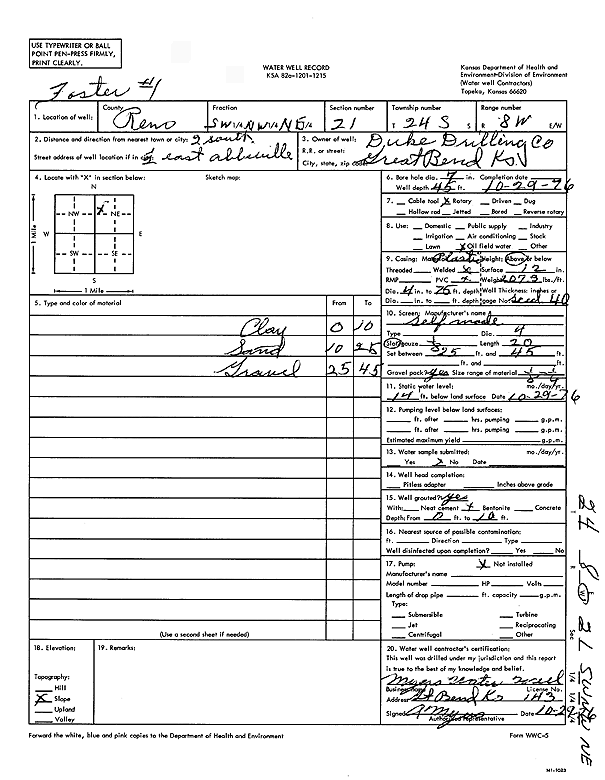 USE TYPEWRITER OR BALL
POINT PEN-PRESS FIRMLY,
PRINT CLEARLY.
WATER WELL RECORD
KSA 82a-1201-1215
Kansas Department of Health and
Environment-Division of Environment
(Water well Contractors)
Topeka, Kansas 66620
Foster #1
1. Location of well:
County Reno
Fraction SW 1/4 NW 1/4 NE 1/4
Section number 21
Township number T 24 S S
Range number R 8W E/W
2. Distance and direction from nearest town or city: 2 south
Street address of well location if in city: east abbuville
3. Owner of well: Duke Drilling Co
R.R. or street:
City, state, zip code: Great Bend Ks
4. Locate with "X" in section below:
Sketch map:
N
NW X NE
W E
SW SE
S
1 Mile
1 Mile
5. Type and color of material From To
Clay 0 10
Sand 10 25
Gravel 25 45
(Use a second sheet if needed)
6. Bore hole dia. 7 in. Completion date
Well depth 45 ft. 10-29-76
7. Cable tool X Rotary Driven Dug
Hollow rod Jetted Bored Reverse rotary
8. Use: Domestic Public supply Industry
Irrigation Air conditioning Stock
Lawn X Oil field water Other
9. Casing: Material Plastic Height: Above or below
Threaded Welded X Surface 12 in.
RMP PVC X Weight 2073 lbs./ft.
Dia. 4 in. to 25 ft. depth Wall Thickness: inches or
Dia. in. to ft. depth gage No. Sced 40
10. Screen: Manufacturer's name
Self made
Type Dia. 4
Slot/gauze 1/8 Length 20
Set between 25 ft. and 45 ft.
ft. and ft.
Gravel pack? yes Size range of material
11. Static water level: mo./day/yr.
14 ft. below land surface Date 10-29-76
12. Pumping level below land surfaces:
ft. after hrs. pumping g.p.m.
ft. after hrs. pumping g.p.m.
Estimated maximum yield g.p.m.
13. Water sample submitted: mo./day/yr.
Yes X No Date
14. Well head completion:
Pitless adapter Inches above grade
15. Well grouted? yes
With: Neat cement X Bentonite Concrete
Depth: From 0 ft. to 10 ft.
16. Nearest source of possible contamination:
ft. Direction Type
Well disinfected upon completion? Yes No
17. Pump: X Not installed
Manufacturer's name
Model number HP Volts
Length of drop pipe ft. capacity g.p.m.
Type:
Submersible Turbine
Jet Reciprocating
Centrifugal Other
18. Elevation:
Topography:
Hill
X Slope
Upland
Valley
19. Remarks:
20. Water well contractor's certification:
This well was drilled under my jurisdiction and this report
is true to the best of my knowledge and belief.
Myers Water Well
Business name License No.
Address Gt Bend Ks 143
Signed Myers Date 10-29
Authorized representative
Forward the white, blue and pink copies to the Department of Health and Environment
Form WWC-5
T 24 R 8 E W Sec 21 1/4 1/4 1/4 SW NW NE